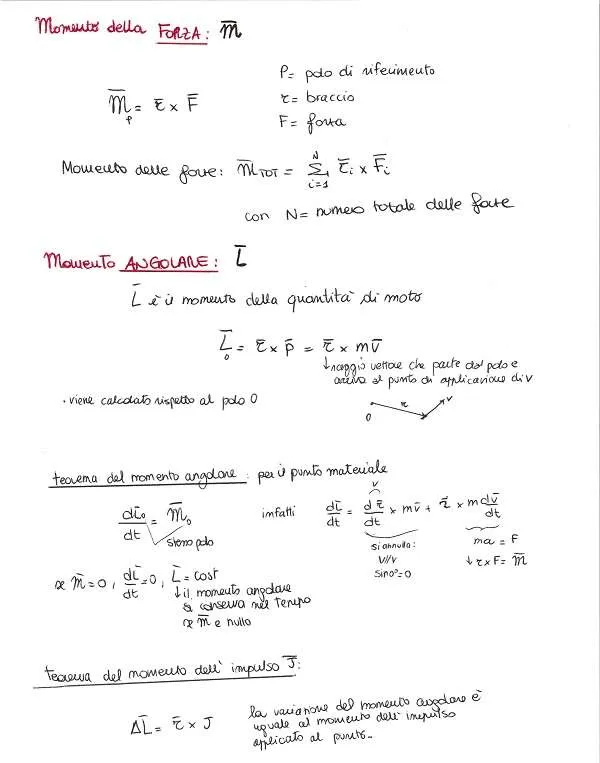 Momento della FORZA: M̅
P = polo di riferimento
M̅_P = r̅ x F̅
r = braccio
F = forza
Momento delle forze: M̅_TOT = Σ_{i=1}^{N} r̅_i x F̅_i
con N = numero totale delle forze
Momento ANGOLARE: L̅
L̅ è il momento della quantità di moto
L̅_0 = r̅ x p̅ = r̅ x m v̅
↓ raggio vettore che parte dal polo e
arriva al punto di applicazione di v
· viene calcolato rispetto al polo O
O r v
teorema del momento angolare : per il punto materiale
dL̅_0/dt = M̅_0
stesso polo
infatti dL̅/dt = dr̅/dt x m v̅ + r̅ x m dv̅/dt
v
si annulla:
v//v
sin0°=0
ma = F
↓ r x F = M̅
se M̅ = 0 , dL̅/dt = 0 , L̅ = cost
↓ il momento angolare
si conserva nel tempo
se M̅ è nullo
teorema del momento dell' impulso J̅:
ΔL̅ = r̅ x J
la variazione del momento angolare è
uguale al momento dell' impulso
applicato al punto.